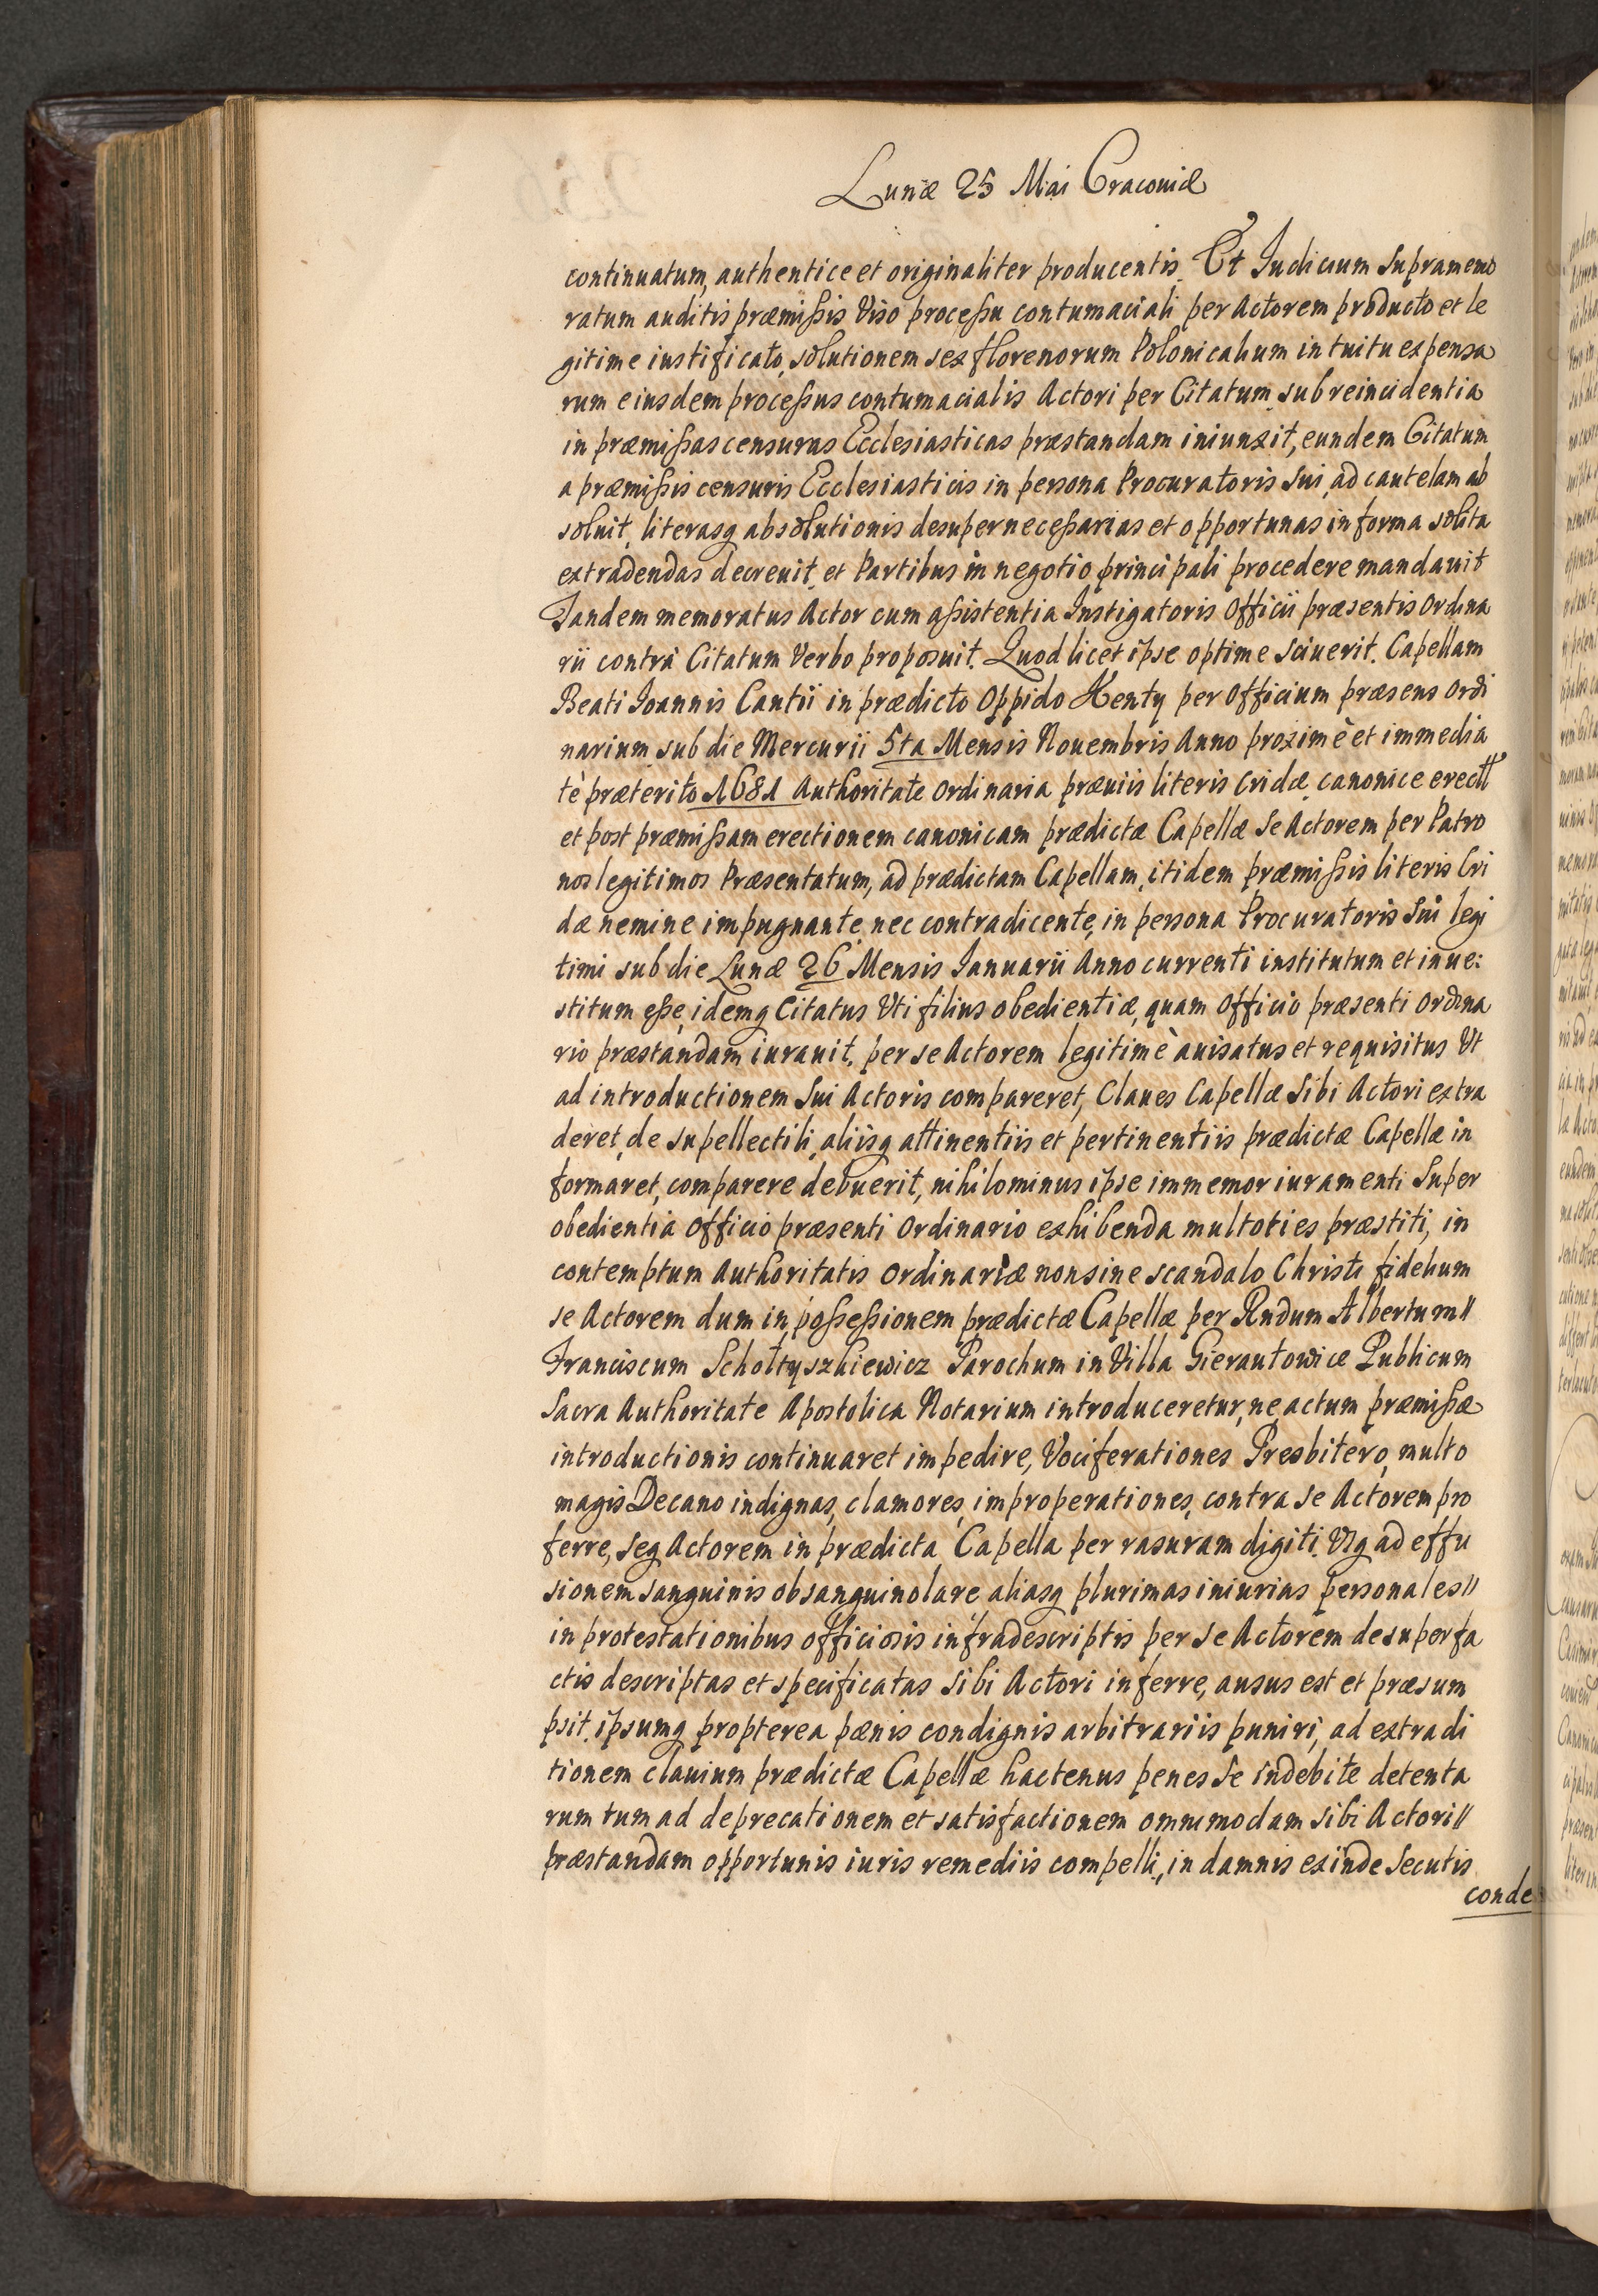 Lunæ 25 Mai Cracouiæ
continuatum, authentice et originaliter producentis. Et Iudicium Supramemo
ratum auditis præmißis Viso proceßu contumaciali per Actorem producto et le
gitime iustificato, solutionem sex florenorum Polonicalium intuitu expensa
rum eiusdem proceßus contumacialis Actori per Citatum sub reincidentia
in præmißas censuras Ecclesiasticas præstandam iniunxit, eundem Citatum
a præmißis censuris Ecclesiasticis in persona Procuratoris Sui, ad cautelam ab
soluit, literasq absolutionis desuper neceßarias et opportunas in forma solita
extradendas decreuit et Partibus in negotio principali procedere mandauit
Tandem memoratus Actor cum aßistentia Instigatoris Officii præsentis Ordina
rii contrà Citatum Verbo proposuit. Quod licet ipse optime Sciuerit. Capellam
Beati Ioannis Cantii in prædicto Oppido Kenty per Officium præsens Ordi
narium sub die Mercurii 5ta Mensis Nouembris Anno proximè et immedia
tè præterito 1681 Authoritate Ordinaria præuiis literis Cridæ canonice erectā
et post præmißam erectionem canonicam prædictæ Capellæ Se Actorem per Patro
nos legitimos Præsentatum, ad prædictam Capellam, itidem præmißis literis Cri
dæ nemine impugnante nec contradicente, in persona Procuratoris Sui legi
timi sub die Lunæ 26 Mensis Ianuarii Anno currenti institutum et inue:
stitum eße, idemq Citatus Uti filius obedientiæ, quam Officio præsenti Ordina
rio præstandam iurauit, per se Actorem legitimè auisatus et requisitus Ut
ad introductionem Sui Actoris compareret, Claues Capellæ Sibi Actori extra
deret, de supellectili, aliisq attinentiis et pertinentiis prædictæ Capellæ in
formaret, comparere debuerit, nihilominus ipse immemor iuramenti Super
obedientia Officio præsenti Ordinario exhibenda multoties præstiti, in
contemptum Authoritatis Ordinariæ non sine scandalo Christi fidelium
se Actorem dum in poßeßionem prædictæ Capellæ per Rndum Albertum//
Franciscum Schołtyszkiewicz Parochum in Villa Gierautowice Publicum
Sacra Authoritate Apostolica Notarium introduceretur, ne actum præmißæ
introductionis continuaret impedire, Vociferationes Presbitero, multo
magis Decano indignas, clamores, improperationes, contra se Actorem pro
ferre, seq Actorem in prædicta Capella per rasuram digiti Usq ad effu
sionem sanguinis obsanguinolare aliasq plurimas iniurias personales//
in protestationibus officiosis infradescriptis per se Actorem desuper fa
ctis descriptas et specificatas Sibi Actori inferre, ausus est et præsum
psit, ipsumq propterea pænis condignis arbitrariis puniri, ad extradi
tionem clauium prædictæ Capellæ hactenus penes Se indebite detenta
rum tum ad deprecationem et satisfactionem omnimodam Sibi Actori//
præstandam opportunis iuris remediis compelli, in damnis exinde Secutis
conde